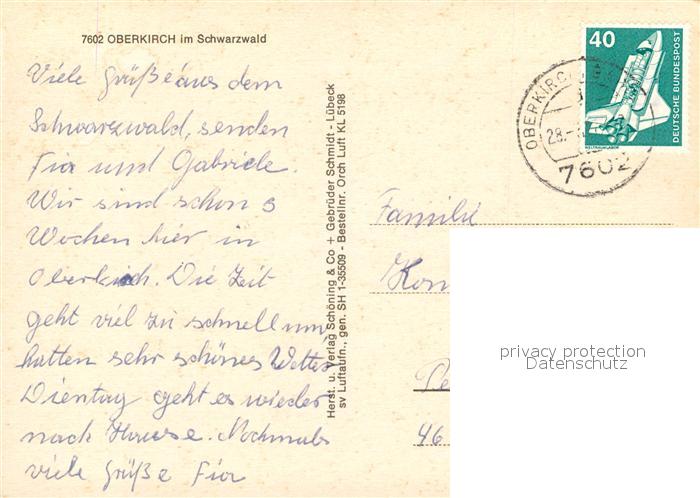 7602 OBERKIRCH im Schwarzwald
Viele Grüße aus dem
Schwarzwald, senden
Fia und Gabriele.
Wir sind schon 3
Wochen hier in
Oberkirch. Die Zeit
geht viel zu schnell um
hatten sehr schönes Wetter
Dientag geht es wieder
nach Hause. Nochmals
viele Grüße Fia
Herst. u. Verlag Schöning & Co + Gebrüder Schmidt - Lübeck
sv Luftaufn., gen. SH 1-35509 - Bestellnr. Orch Luft KL 5198
OBERKIRCH
28.
7602
40
DEUTSCHE BUNDESPOST
WELTRAUMLABOR
Familie
46
privacy protection
Datenschutz